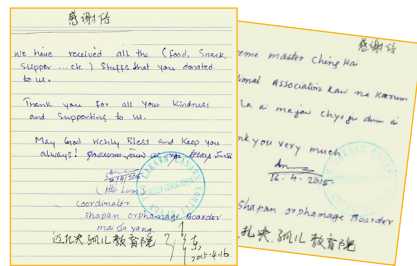 感谢信
We have received all the (food, Snack,
Slipper ... etc) Stuffs that you donated
to us.
Thank you for all your Kindness
and Supporting to us.
May God richly Bless and Keep you
always!
Coordinator
Shapan orphanage Boarder
mai Ja yang.
孤儿教育院
2015.4.16
感谢信
eme master Ching Hai
onal Association kaw na karum
La ai majaw chyeju dum ai
nk you very much.
16.4.2015
Shapan orphanage Boarder
孤儿教育院